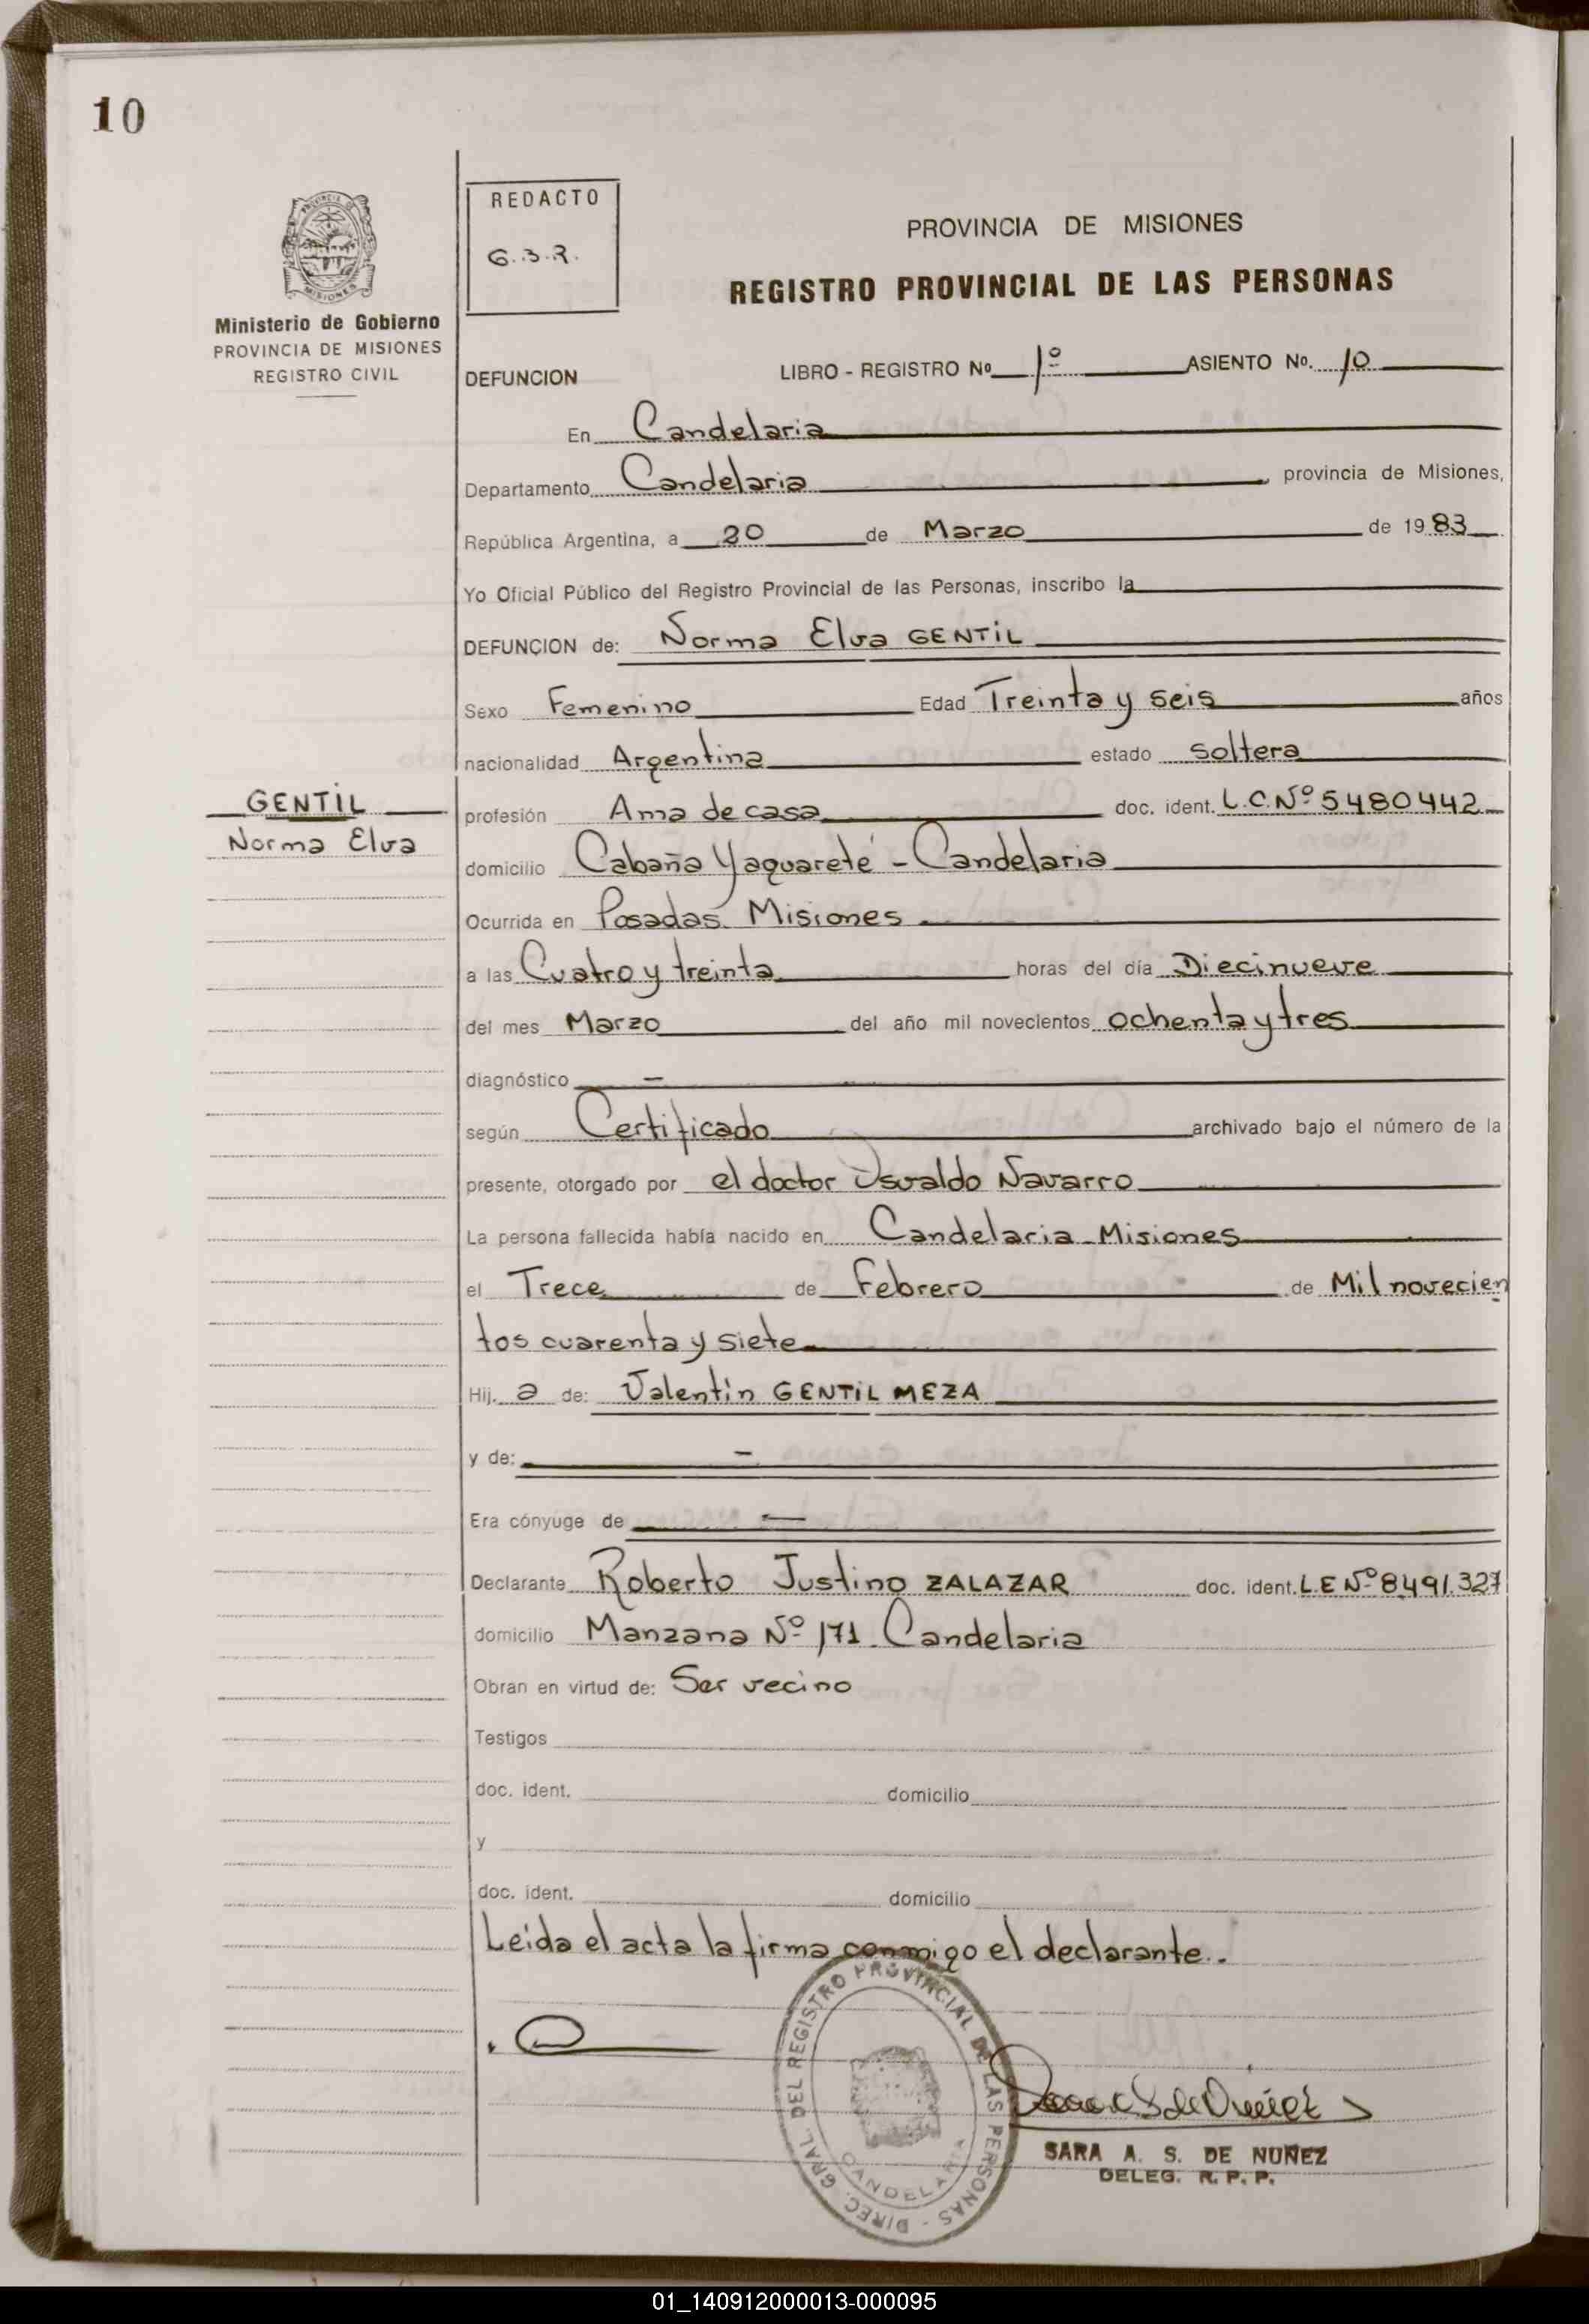 10
PROVINCIA DE MISIONES
Ministerio de Gobierno
PROVINCIA DE MISIONES
REGISTRO CIVIL
REDACTO
G.B.R.
PROVINCIA DE MISIONES
REGISTRO PROVINCIAL DE LAS PERSONAS
DEFUNCION LIBRO - REGISTRO Nº 1º ASIENTO Nº. 10
En Candelaria
Departamento Candelaria, provincia de Misiones,
República Argentina, a 20 de Marzo de 1983
Yo Oficial Público del Registro Provincial de las Personas, inscribo la
DEFUNCION de: Norma Elva GENTIL
Sexo Femenino Edad Treinta y seis años
nacionalidad Argentina estado soltera
GENTIL
Norma Elva
profesión Ama de casa doc. ident. L.C.Nº 5480442
domicilio Cabaña Yaguareté - Candelaria
Ocurrida en Posadas Misiones
a las Cuatro y treinta horas del día Diecinueve
del mes Marzo del año mil novecientos ochenta y tres
diagnóstico —
según Certificado archivado bajo el número de la
presente, otorgado por el doctor Osvaldo Navarro
La persona fallecida había nacido en Candelaria - Misiones
el Trece de Febrero de Mil novecien
tos cuarenta y siete
Hij. a de: Valentín GENTIL MEZA
y de: —
Era cónyuge de —
Declarante Roberto Justino ZALAZAR doc. ident. L.E Nº 8.491.327
domicilio Manzana Nº 171. Candelaria
Obran en virtud de: Ser vecino
Testigos
doc. ident. domicilio
y
doc. ident. domicilio
Leida el acta la firma conmigo el declarante.-
DIREC. GRAL. DEL REGISTRO PROVINCIAL DE LAS PERSONAS -
CANDELARIA
SARA A. S. DE NUÑEZ
DELEG. R. P. P.
01_140912000013-000095